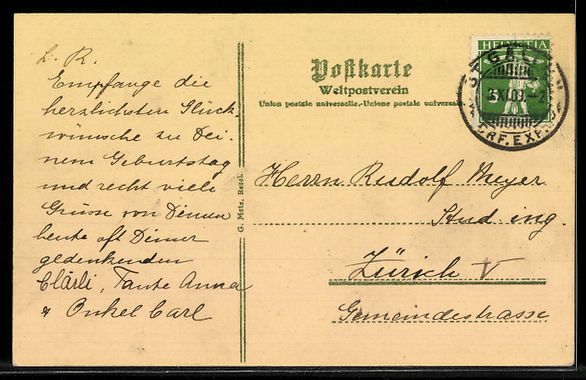 L. R.
Empfange die
herzlichsten Glück,
wünsche zu Dei,
nem Geburtstag
und recht viele
Grüsse von Deinen
heute oft Deiner
gedenkenden
Clärli, Tante Anna
& Onkel Carl
G. Metz, Basel
Postkarte
Weltpostverein
Union postale universelle.-Unione postale universale
HELVETIA
ST. GALLEN
3.X.09.-2
BRF. EXP.
Herrn Rudolf Meyer
Stud ing.
Zürich V
Gemeindestrasse